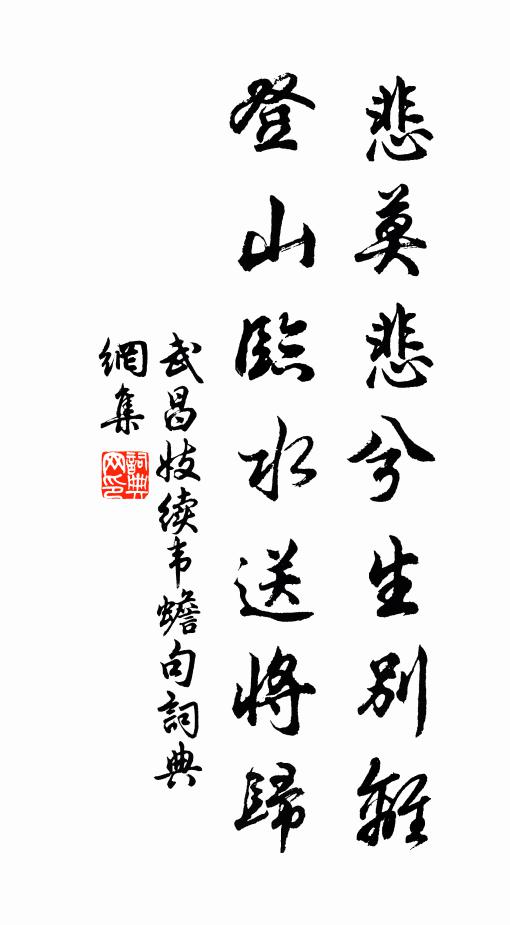 悲莫悲兮生別離
登山臨水送將歸
武昌妓续韦蟾句詞典
網集
詞典網印